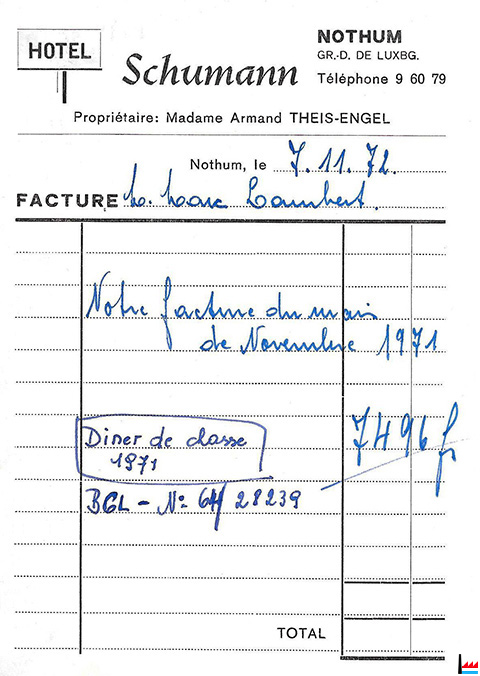 HOTEL
Schumann
NOTHUM
GR.-D. DE LUXBG.
Téléphone 9 60 79
Propriétaire: Madame Armand THEIS-ENGEL
Nothum, le 7.11.72.
FACTURE M. Marc Lambert.
Notre facture du mois
de Novembre 1971
7496 fr
Diner de chasse
1971
BGL - No: 64/ 28239
TOTAL